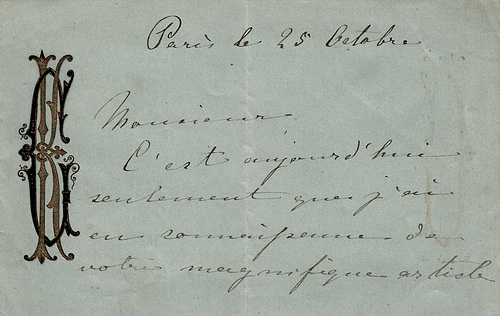 Paris le 25 Octobre
Monsieur
C'est aujourd'hui
seulement que j'ai
eu connaissance de
votre magnifique article